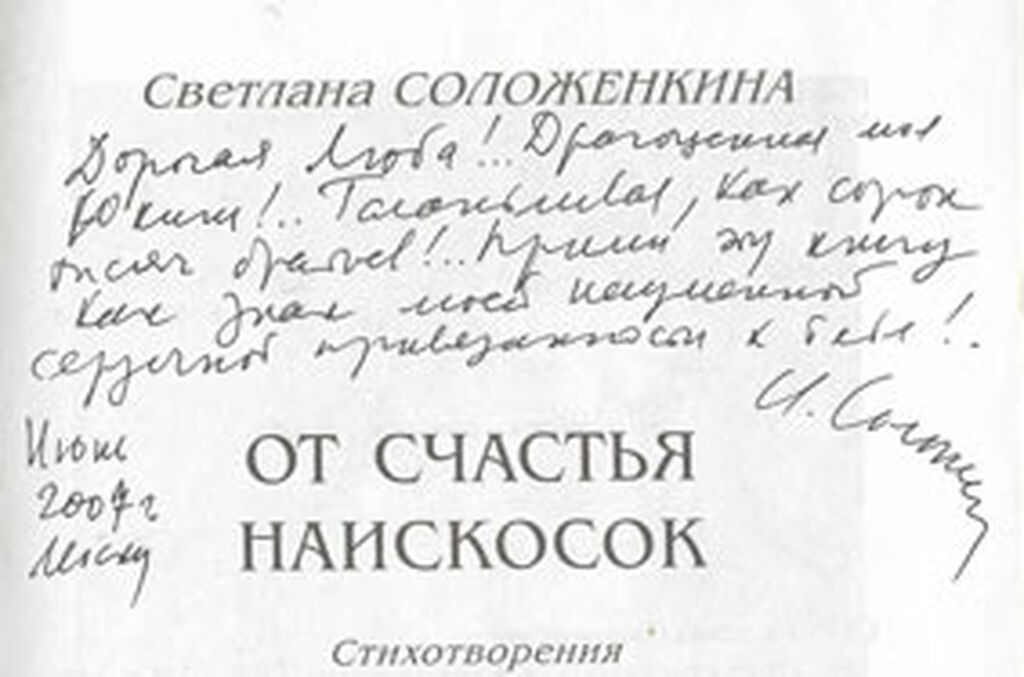 Светлана СОЛОЖЕНКИНА
Дорогая Люба!.. Драгоценная моя
Талантливая, как сорок
тысяч братьев!.. Прими эту книгу
как знак моей неуменной
сердечной привязанности к тебе!..
Июнь
2007 г
ОТ СЧАСТЬЯ
НАИСКОСОК
Стихотворения